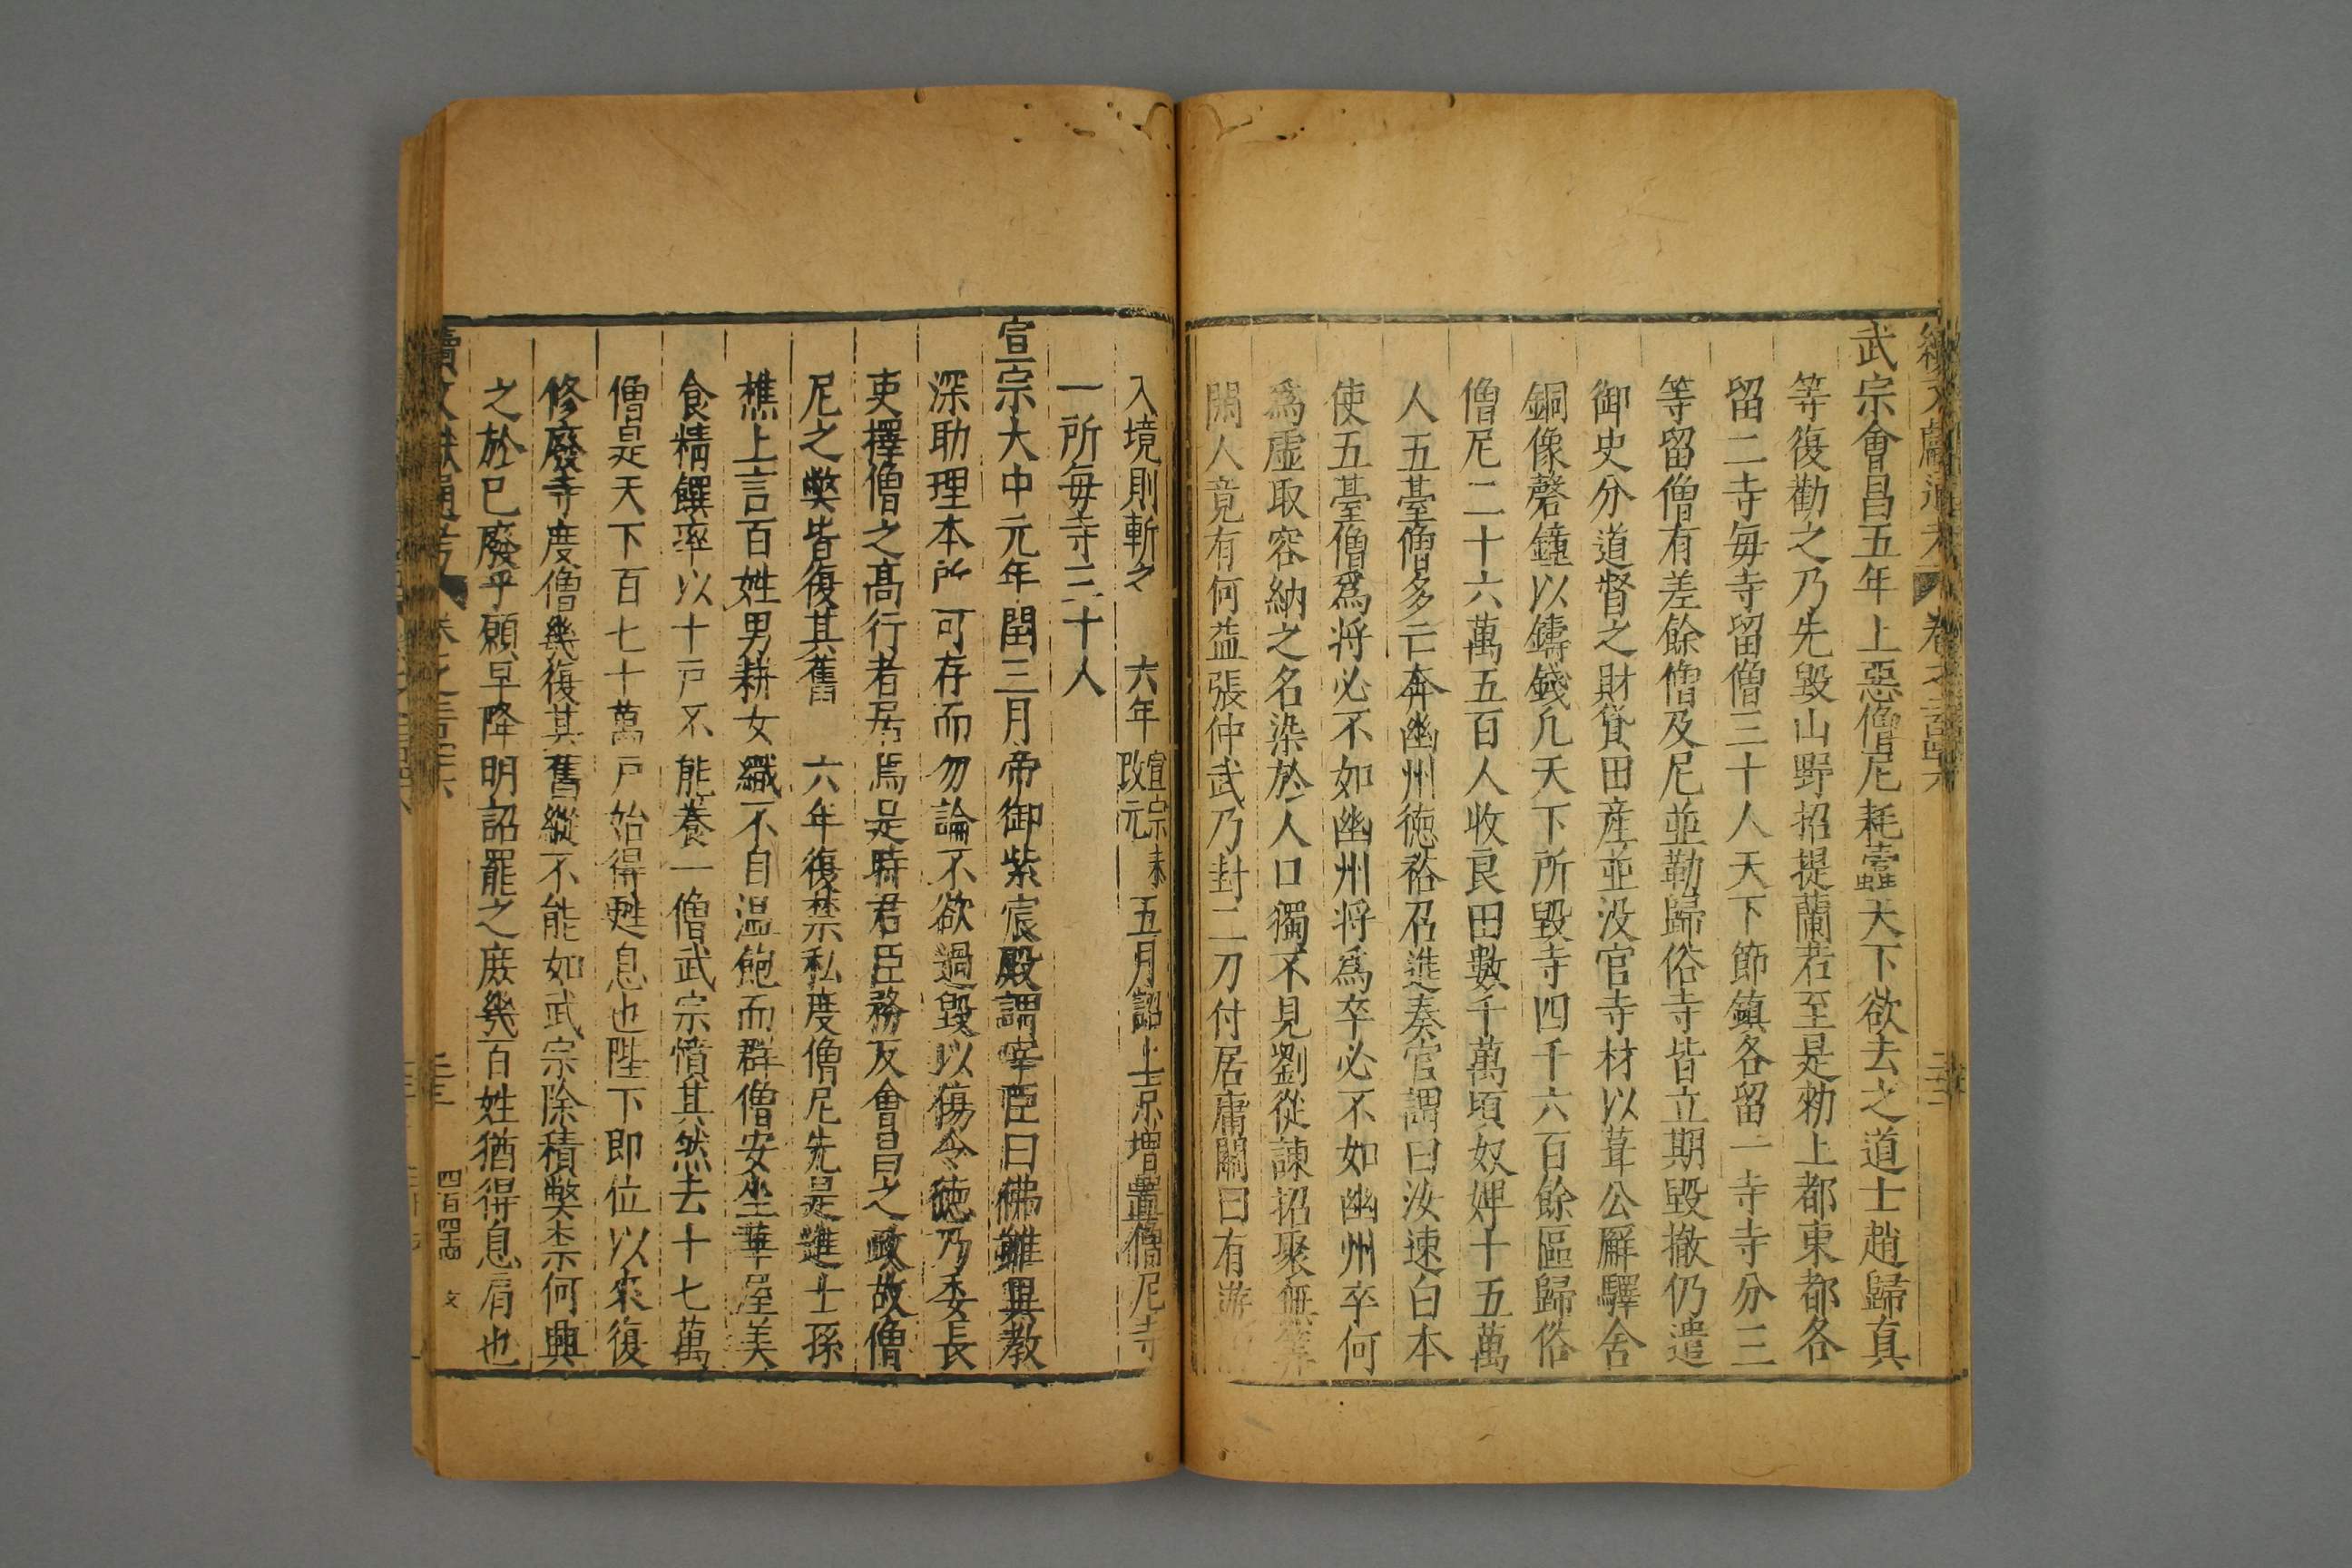 武宗會昌五年上惡僧尼耗蠹天下欲去之道士趙歸真
等復勸之乃先毀山野招提蘭若至是勑上都東都各
留二寺每寺留僧三十人天下節鎮各留一寺寺分三
等留僧有差餘僧及尼並勒歸俗寺皆立期毀撤仍遣
御史分道督之財貨田產並沒官寺材以葺公廨驛舍
銅像磬鐘以鑄錢凡天下所毀寺四千六百餘區歸俗
僧尼二十六萬五百人收良田數千萬頃奴婢十五萬
人五臺僧多亡奔幽州德裕召進奏官謂曰汝速白本
使五臺僧爲将必不如幽州将爲卒必不如幽州卒何
爲虛取容納之名染於人口獨不見劉從諫招聚無筭
閑人竟有何益張仲武乃封二刀付居庸關曰有游
入境則斬之 六年宣宗未改元五月詔上京增置僧尼寺
一所每寺三十人
宣宗大中元年閏三月帝御紫宸殿謂宰臣曰佛雖異教
深助理本所可存而勿論不欲過毀以傷令德乃委長
吏擇僧之高行者居焉是時君臣務反會昌之政故僧
尼之弊皆復其舊 六年復禁私度僧尼先是進士孫
樵上言百姓男耕女織不自温飽而群僧安坐華屋美
食精饌率以十戶不能養一僧武宗憤其然去十七萬
僧是天下百七十萬戶始得甦息也陛下即位以來復
修廢寺度僧幾復其舊縱不能如武宗除積弊柰何興
之於已廢乎願早降明詔罷之庶幾百姓猶得息肩也
續文獻通考
四百四十四 文